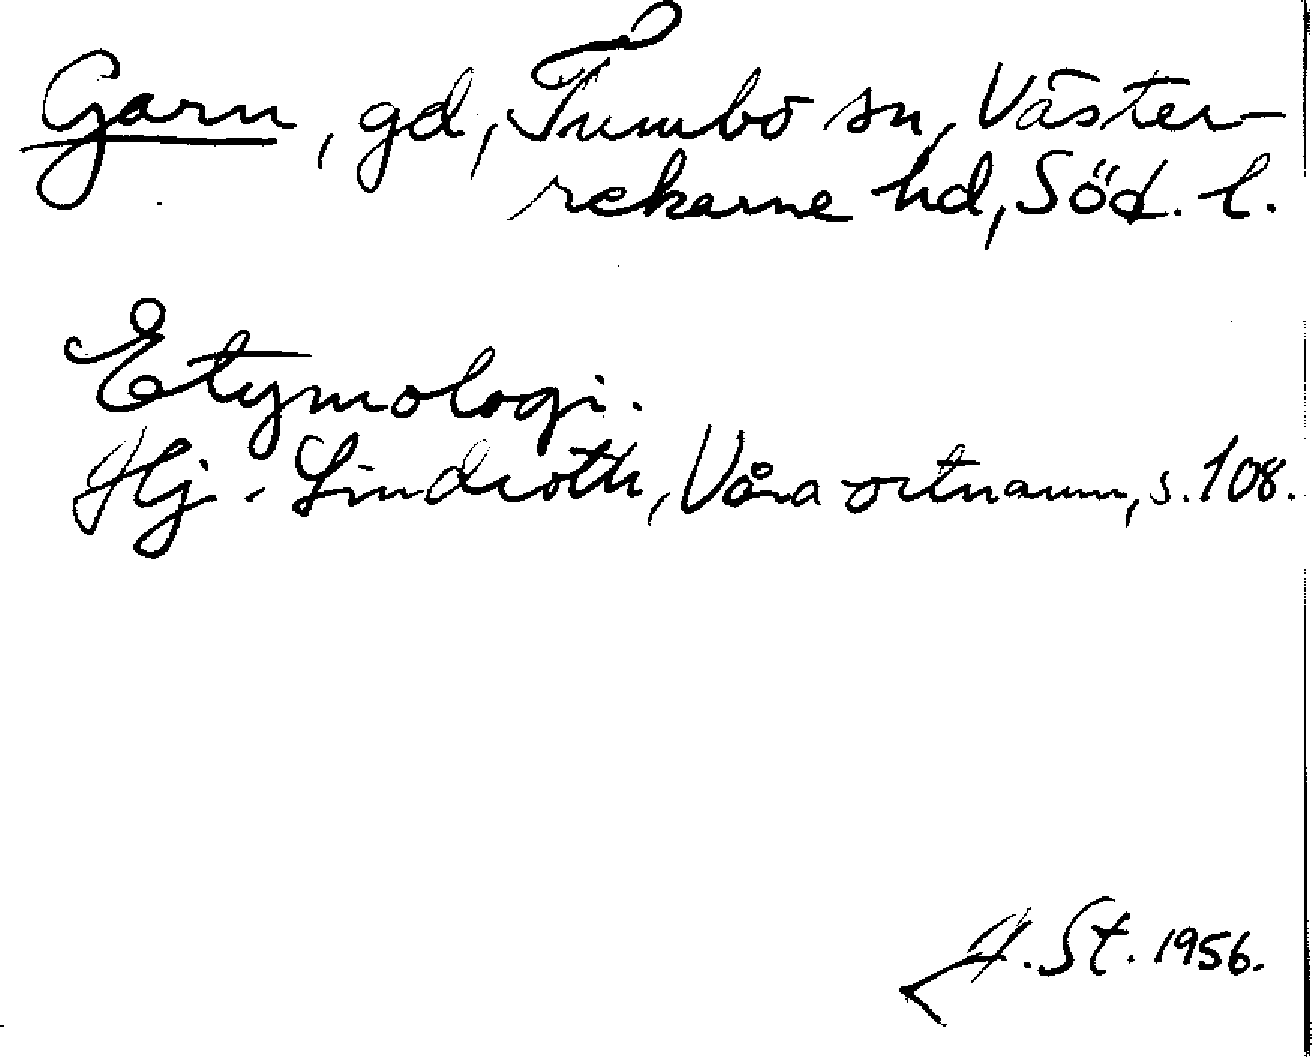 Garn, gd, Tumbo sn, Väster-
rekarne hd, Söd. l.
Etymologi.
Hj. Lindroth, Våra ortnamn, s. 108.
H. St. 1956.